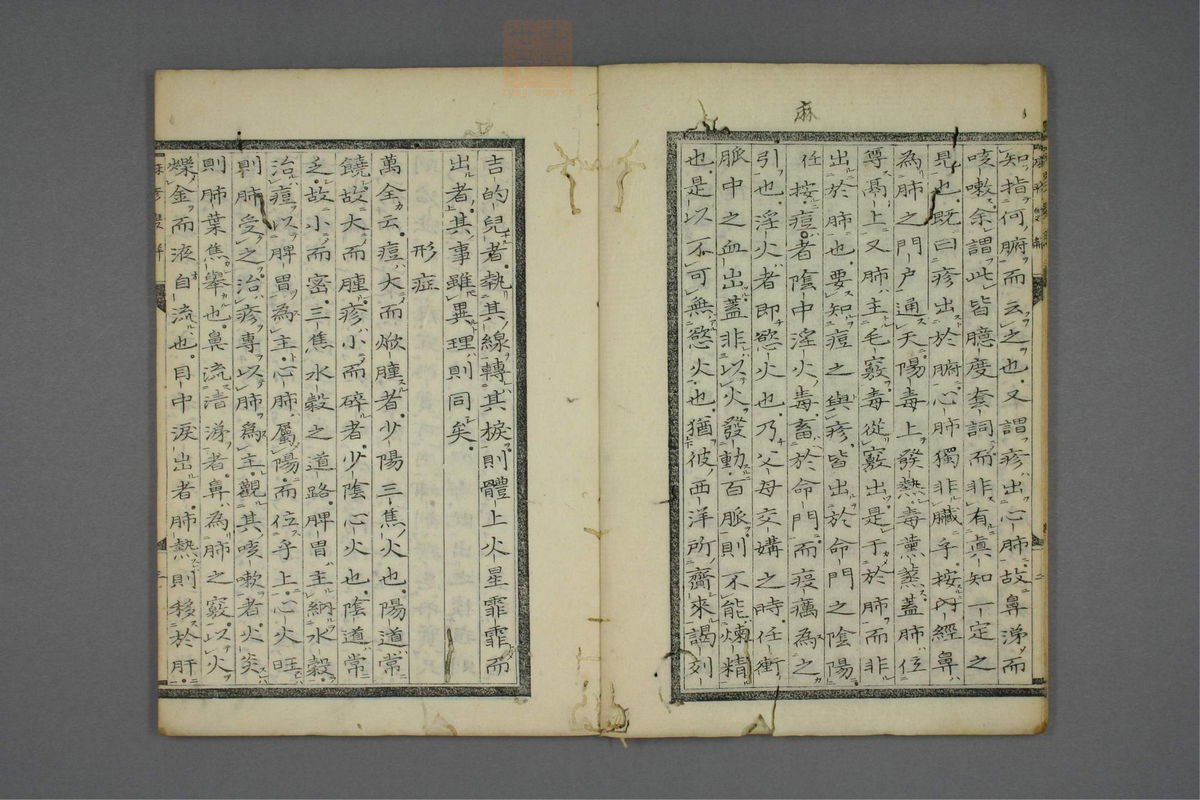 麻
知指何腑而云之也又謂疹出心肺故鼻涕而
咳嗽余謂此皆臆度套詞而非有眞知一定之
見也既曰疹出於腑心肺獨非臟乎按内經鼻
為肺之門戶通天陽毒上發熱毒薰蒸蓋肺位
尊髙上又肺主毛竅毒從竅出是于於肺而非
出於肺也要知痘之與疹皆出於命門之陰陽
任按痘者陰中淫火毒畜於命門而疫癘為之
引也淫火者即慾火也乃父母交媾之時任衝
脈中之血出蓋非以火發動百脈則不能煉精
也是以不可無慾火也猶彼西洋所齎來謁刻
吉的兒者執其線轉其捩則體上火星霏霏而
出者其事雖異理則同矣
形症
萬金云痘大而焮腫者少陽三焦火也陽道常
饒故大而腫疹小而碎者少陰心火也陰道常
乏故小而密三焦水穀之道路脾胃主納水穀
治痘以脾胃為主心肺屬陽而位乎上心火旺
則肺受之治疹專以肺為主觀其咳嗽者火炎
則肺葉焦擧也鼻流清涕者鼻為肺之竅以火
爍金而液自流也目中淚出者肺熱則移於肝